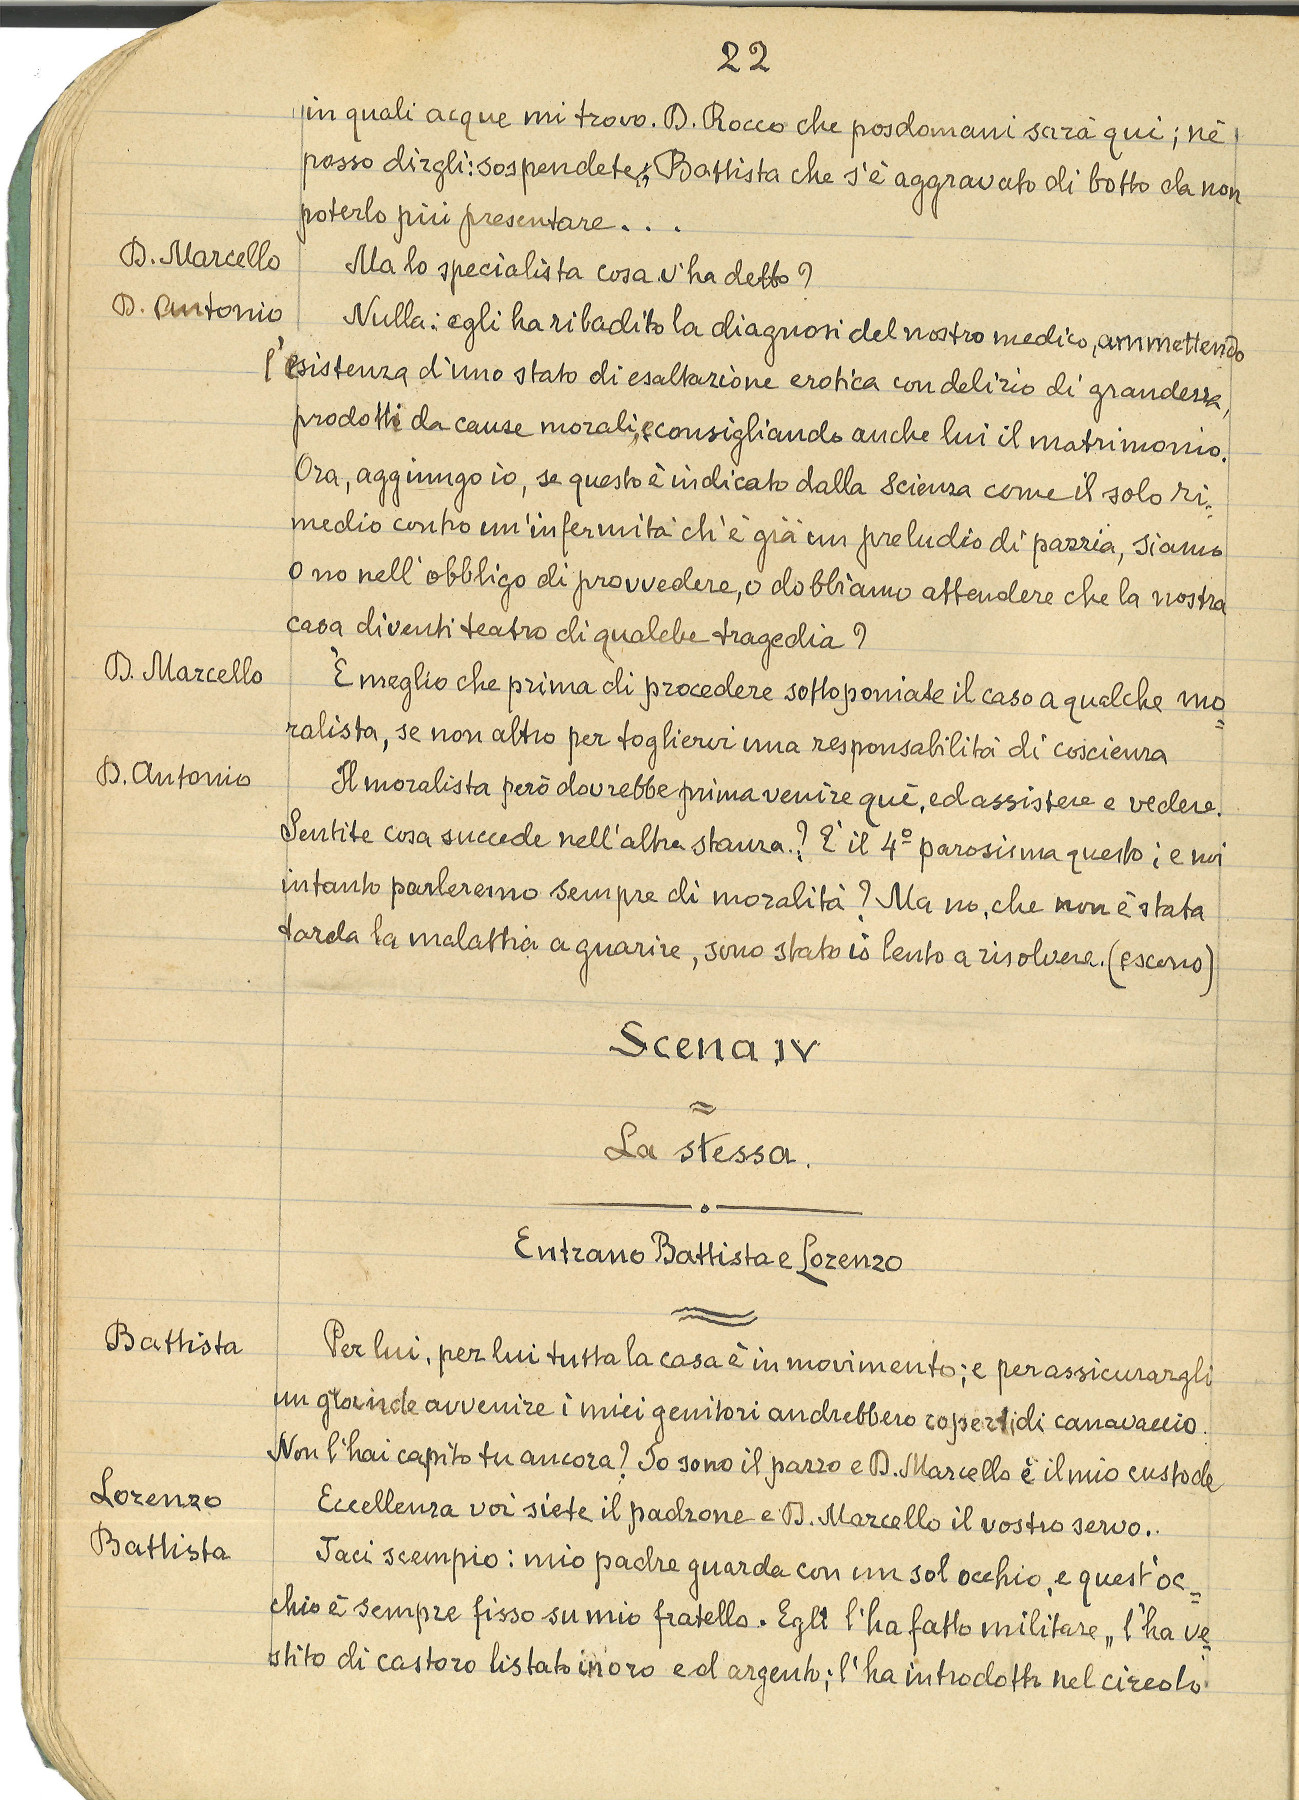 22
in quali acque mi trovo. D. Rocco che posdomani sarà qui; nè
posso dirgli: sospendete; Battista che s'è aggravato di botto da non
poterlo più presentare...
D. Marcello Ma lo specialista cosa v'ha detto?
D. Antonio Nulla: egli ha ribadito la diagnosi del nostro medico, ammettendo
l'esistenza d'uno stato di esaltazione erotica con delirio di grandezza,
prodotti da cause morali, e consigliando anche lui il matrimonio.
Ora, aggiungo io, se questo è indicato dalla Scienza come il solo ri=
medio contro un'infermità ch'è già un preludio di pazzia, siamo
o no nell'obbligo di provvedere, o dobbiamo attendere che la nostra
casa diventi teatro di qualche tragedia?
D. Marcello È meglio che prima di procedere sottoponiate il caso a qualche mo=
ralista, se non altro per togliervi una responsabilità di coscienza
D. Antonio Il moralista però dovrebbe prima venire quì, ed assistere e vedere.
Sentite cosa succede nell'altra stanza.? È il 4º parosisma questo; e noi
intanto parleremo sempre di moralità? Ma no, che non è stata
tarda la malattia a guarire, sono stato io lento a risolvere. (escono)
Scena IV
=
La stessa.
Entrano Battista e Lorenzo
Battista Per lui, per lui tutta la casa è in movimento; e per assicurargli
un grande avvenire i miei genitori andrebbero coperti di canavaccio.
Non l'hai capito tu ancora? Io sono il pazzo e D. Marcello è il mio custode
Lorenzo Eccellenza voi siete il padrone e D. Marcello il vostro servo..
Battista Taci scempio: mio padre guarda con un sol occhio, e quest'oc=
chio è sempre fisso su mio fratello. Egli l'ha fatto militare,, l'ha ve=
stito di castoro listato in oro ed argento; l'ha introdotto nel circolo